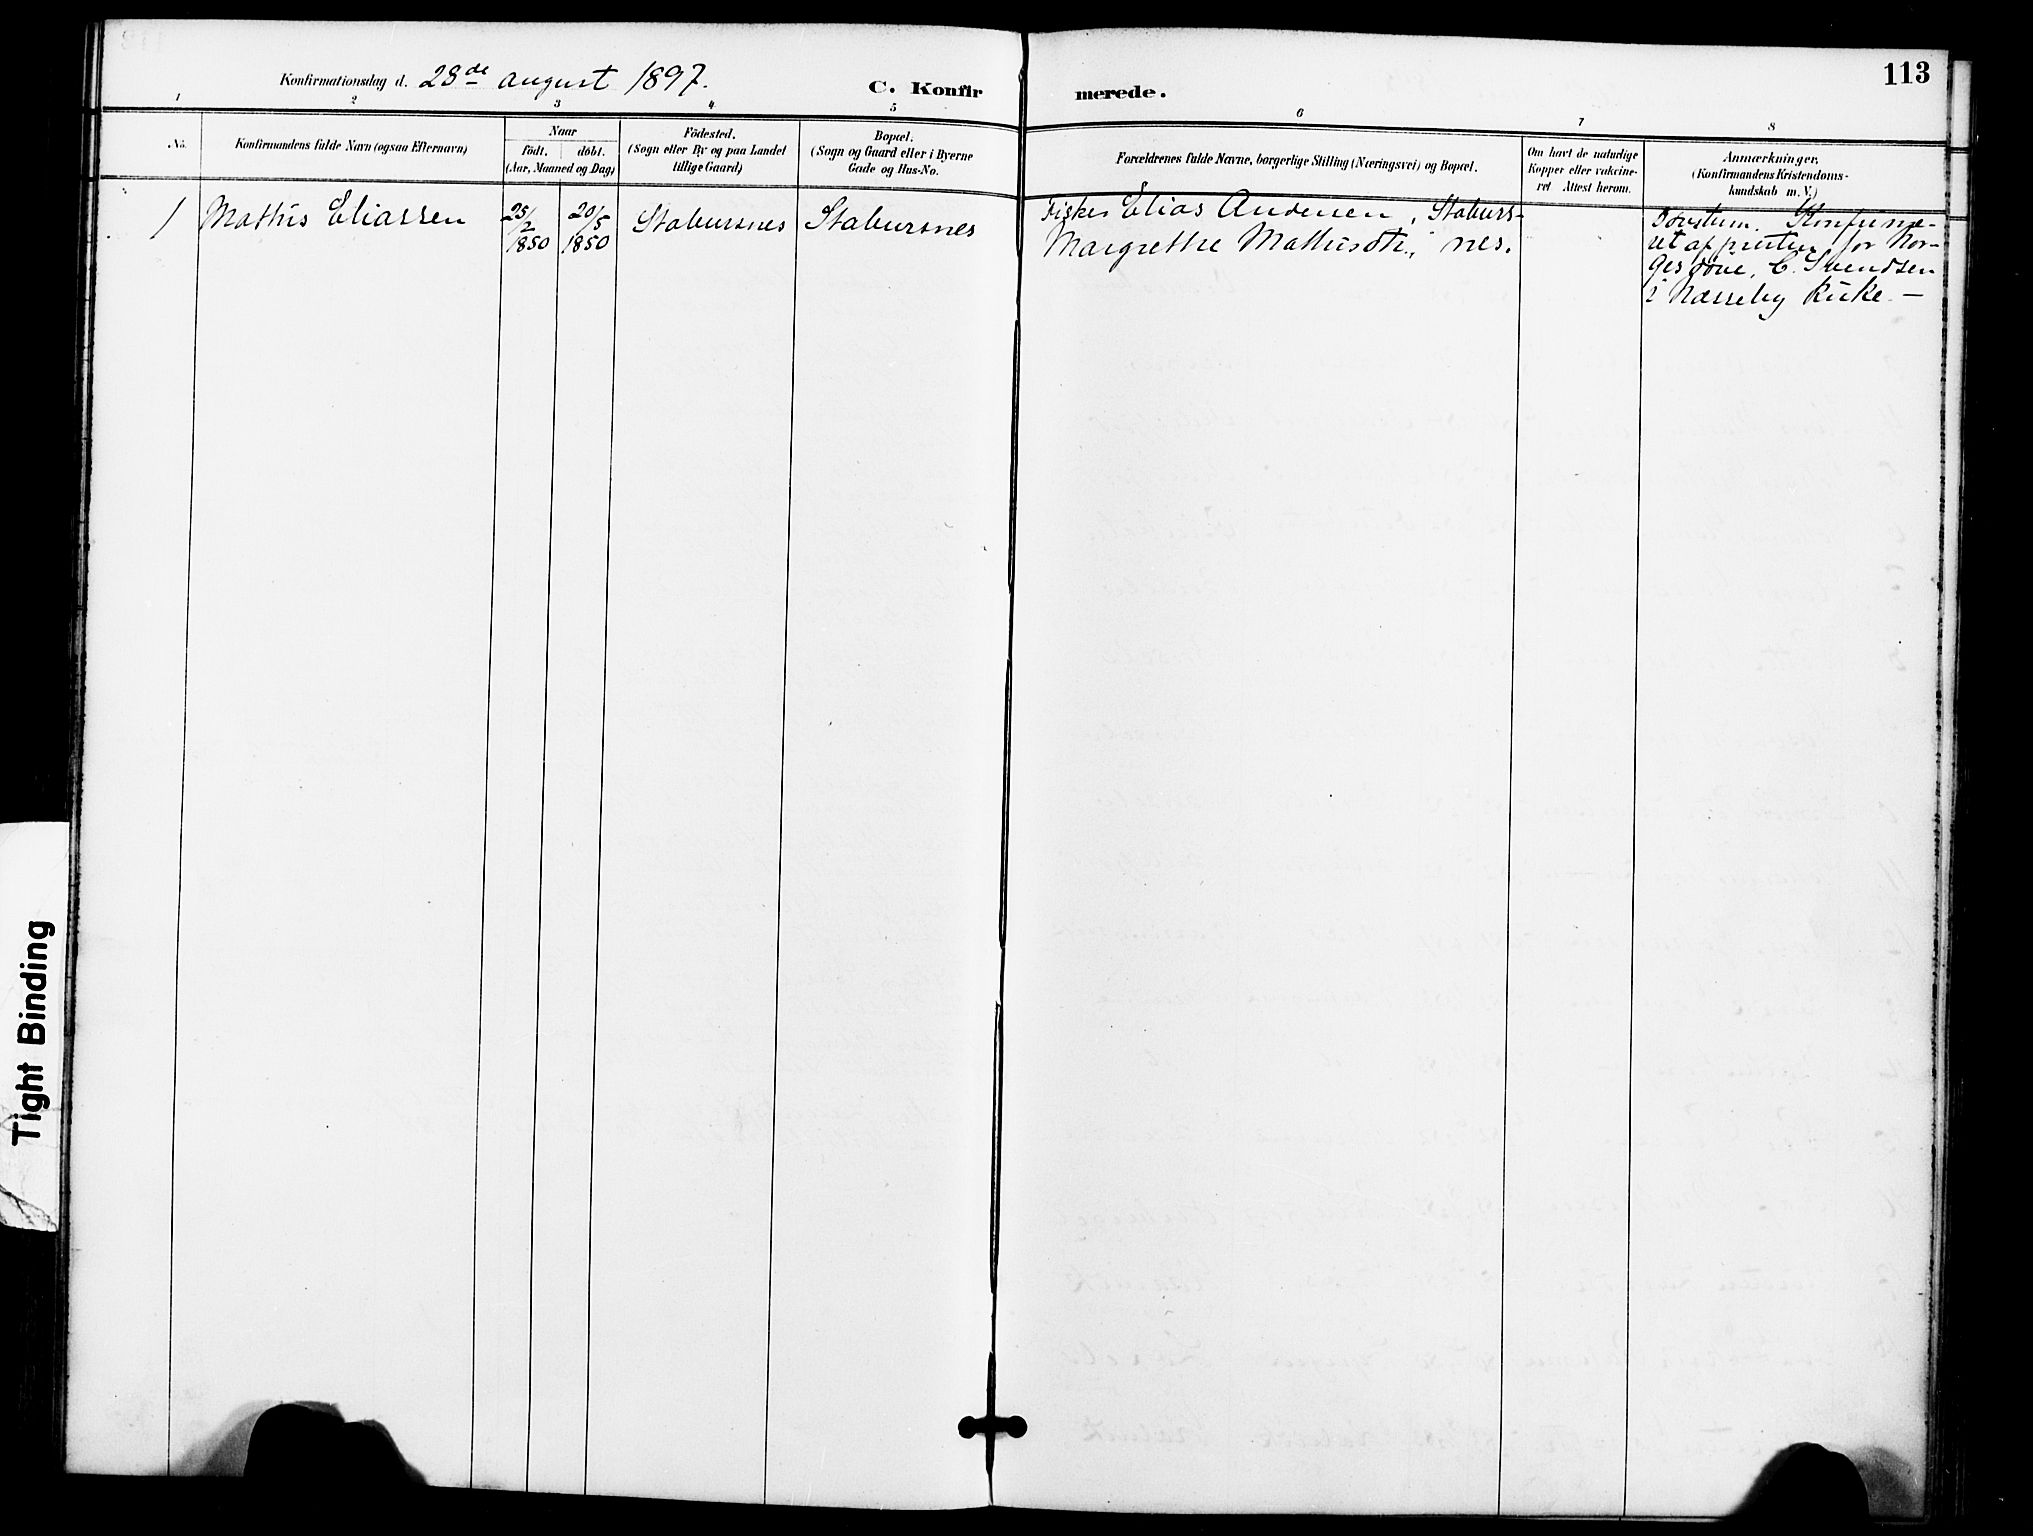 113
Konfirmationsdag d. 28de august 1897.
C. Konfirmerede.
1 2 3 4 5 6 7 8
No.
Konfirmandens fulde Navn (ogsaa Efternavn)
Naar
födt. döbt.
(Aar, Maaned og Dag)
Födested.
(Sogn eller By og paa Landet
tillige Gaard)
Bopæl.
(Sogn og Gaard eller i Byerne
Gade og Hus-No.
Forældrenes fulde Navne, borgerlige Stilling (Næringsvei) og Bopæl.
Om havt de naturlige
Kopper eller vakcine-
ret Attest herom.
Anmærkninger,
(Konfirmandens Kristendoms-
kundskab m. V.)
1
Mathis Eliassen
25/2
1850
20/5
1850
Stabursnes
Stabursnes
Fisker Elias Andersen, Staburs-
Margrethe Mathisdtr., nes.
Døvstum. Konfirme-
ret af presten for Nor-
ges døve, C. Svendsen
i Næsseby kirke. —
Tight Binding